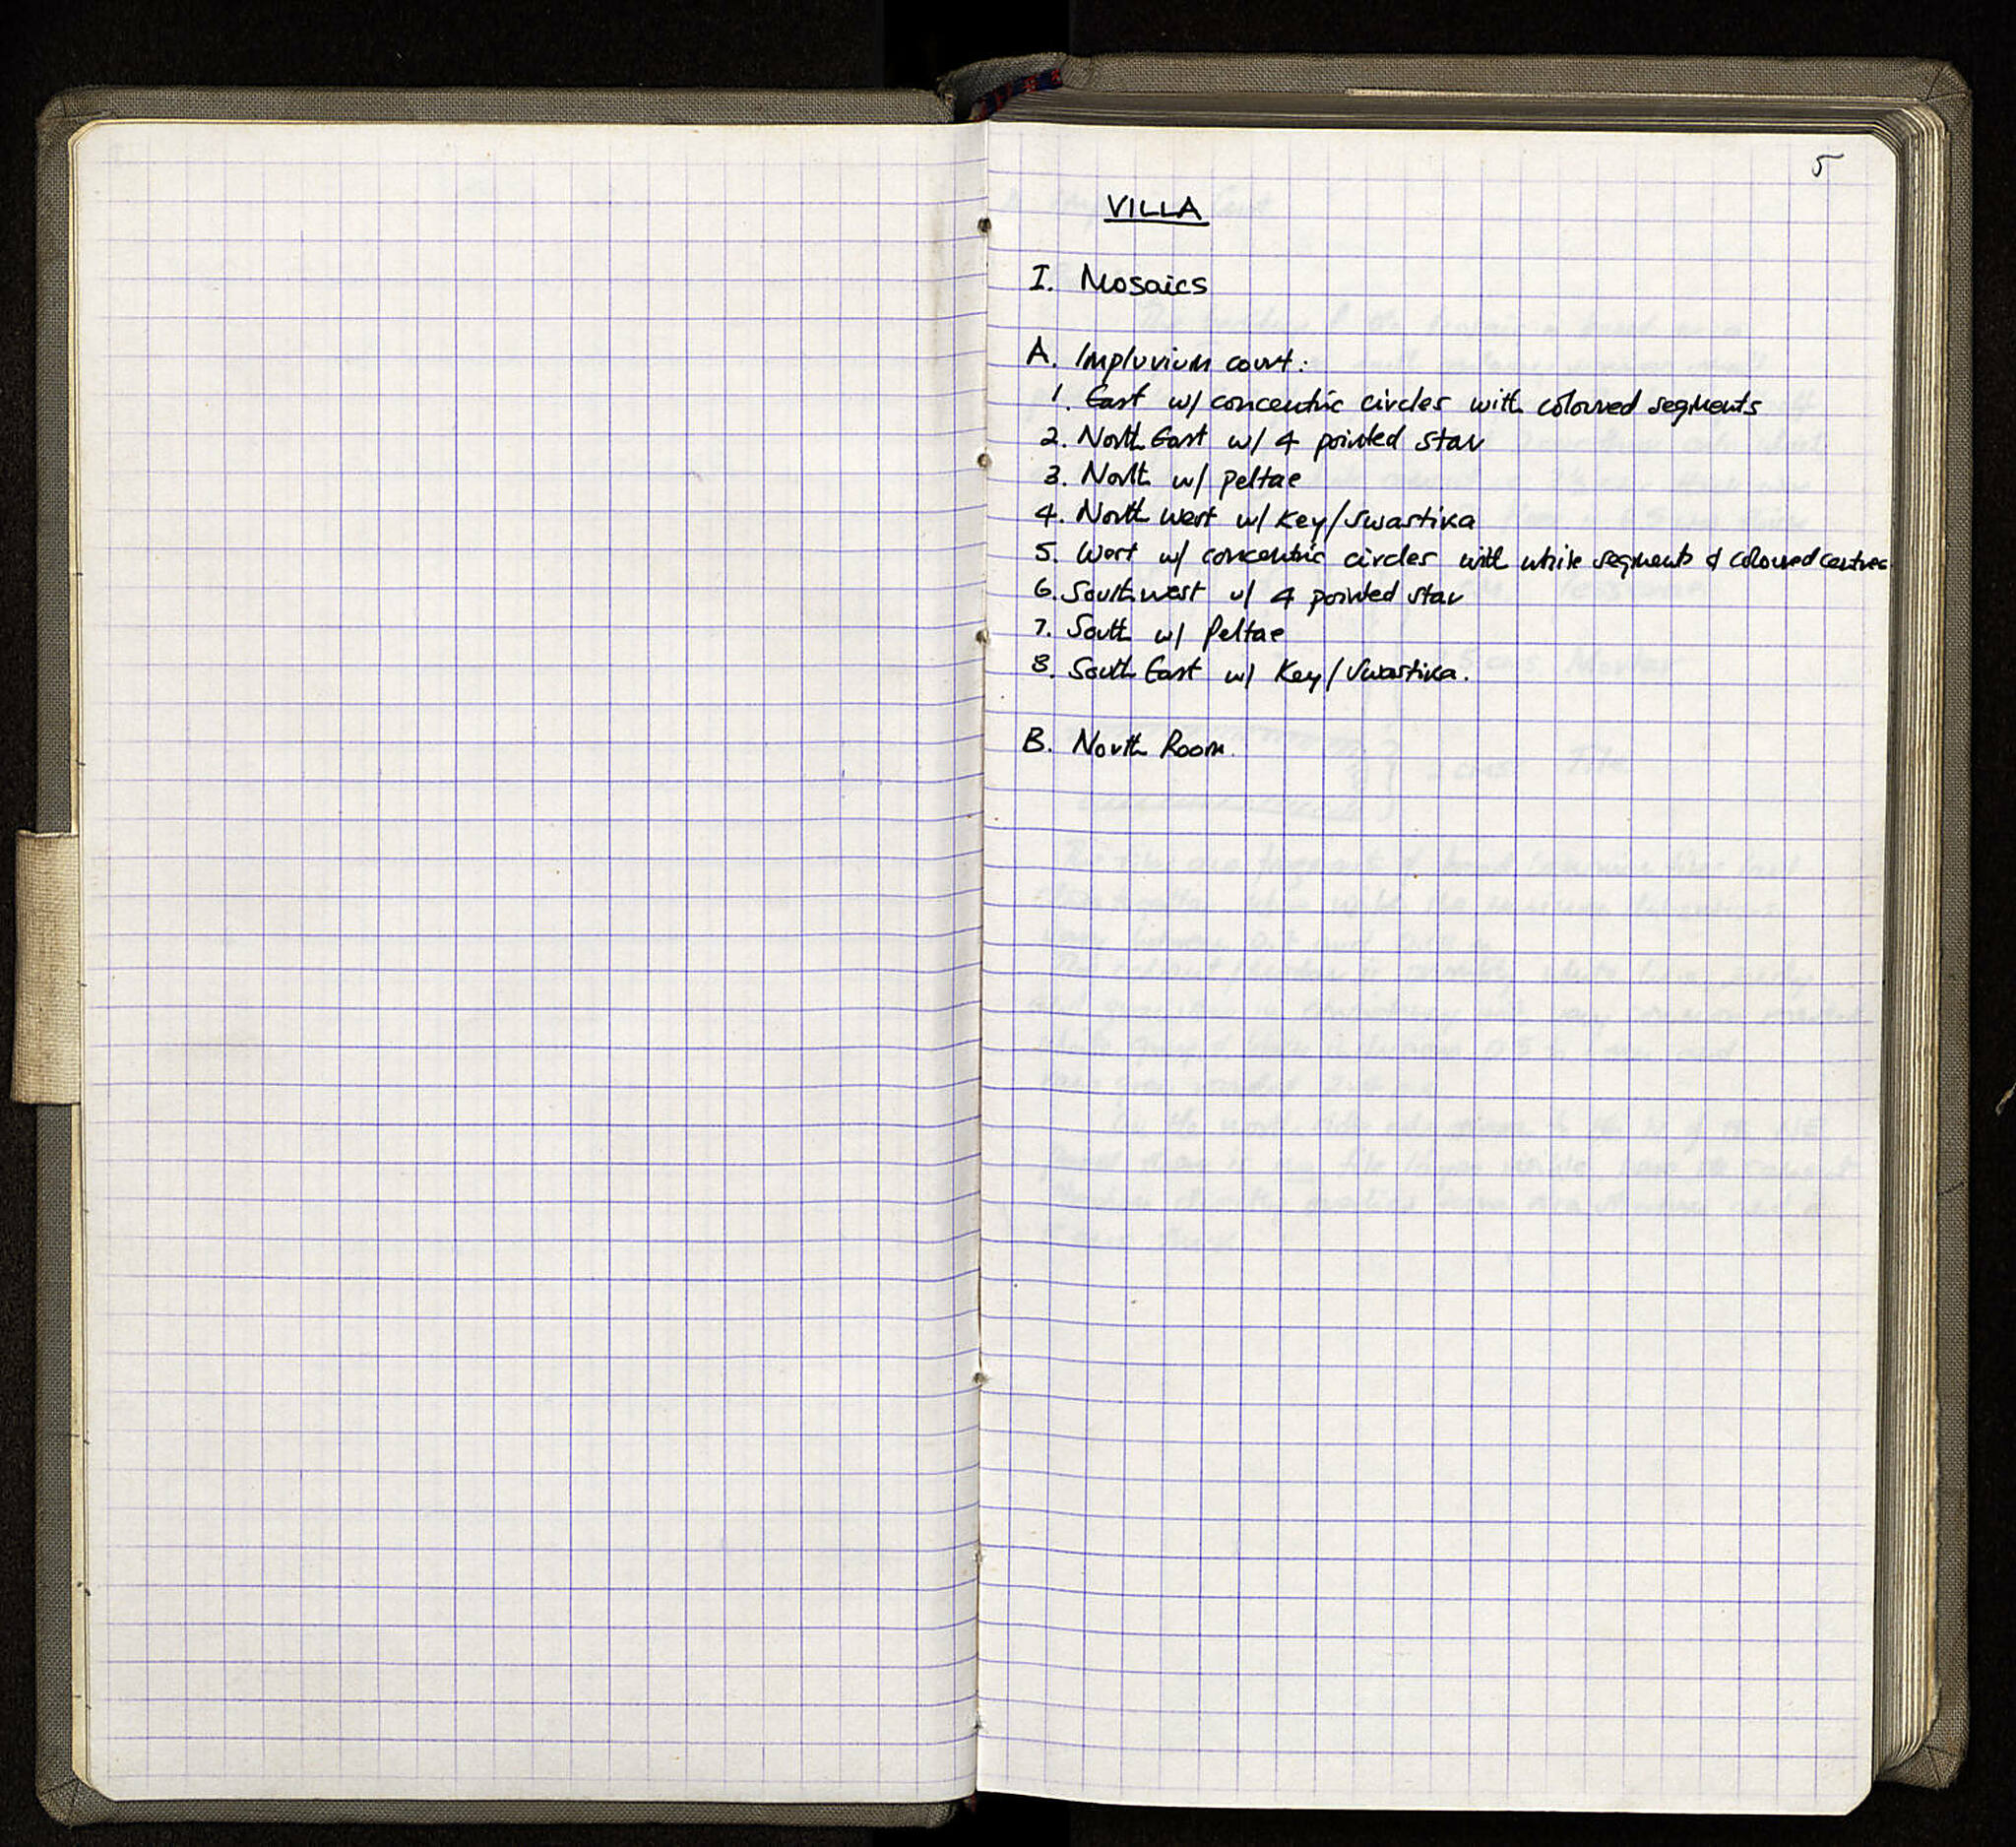 5
VILLA
I. Mosaics
A. Impluvium court:
1. East w/ concentric circles with coloured segments
2. North East w/ 4 pointed star
3. North w/ peltae
4. North West w/ Key/Swastika
5. West w/ concentric circles with white segments & coloured centres
6. South west w/ 4 pointed star
7. South w/ Peltae
8. South East w/ Key/Swastika.
B. North Room.